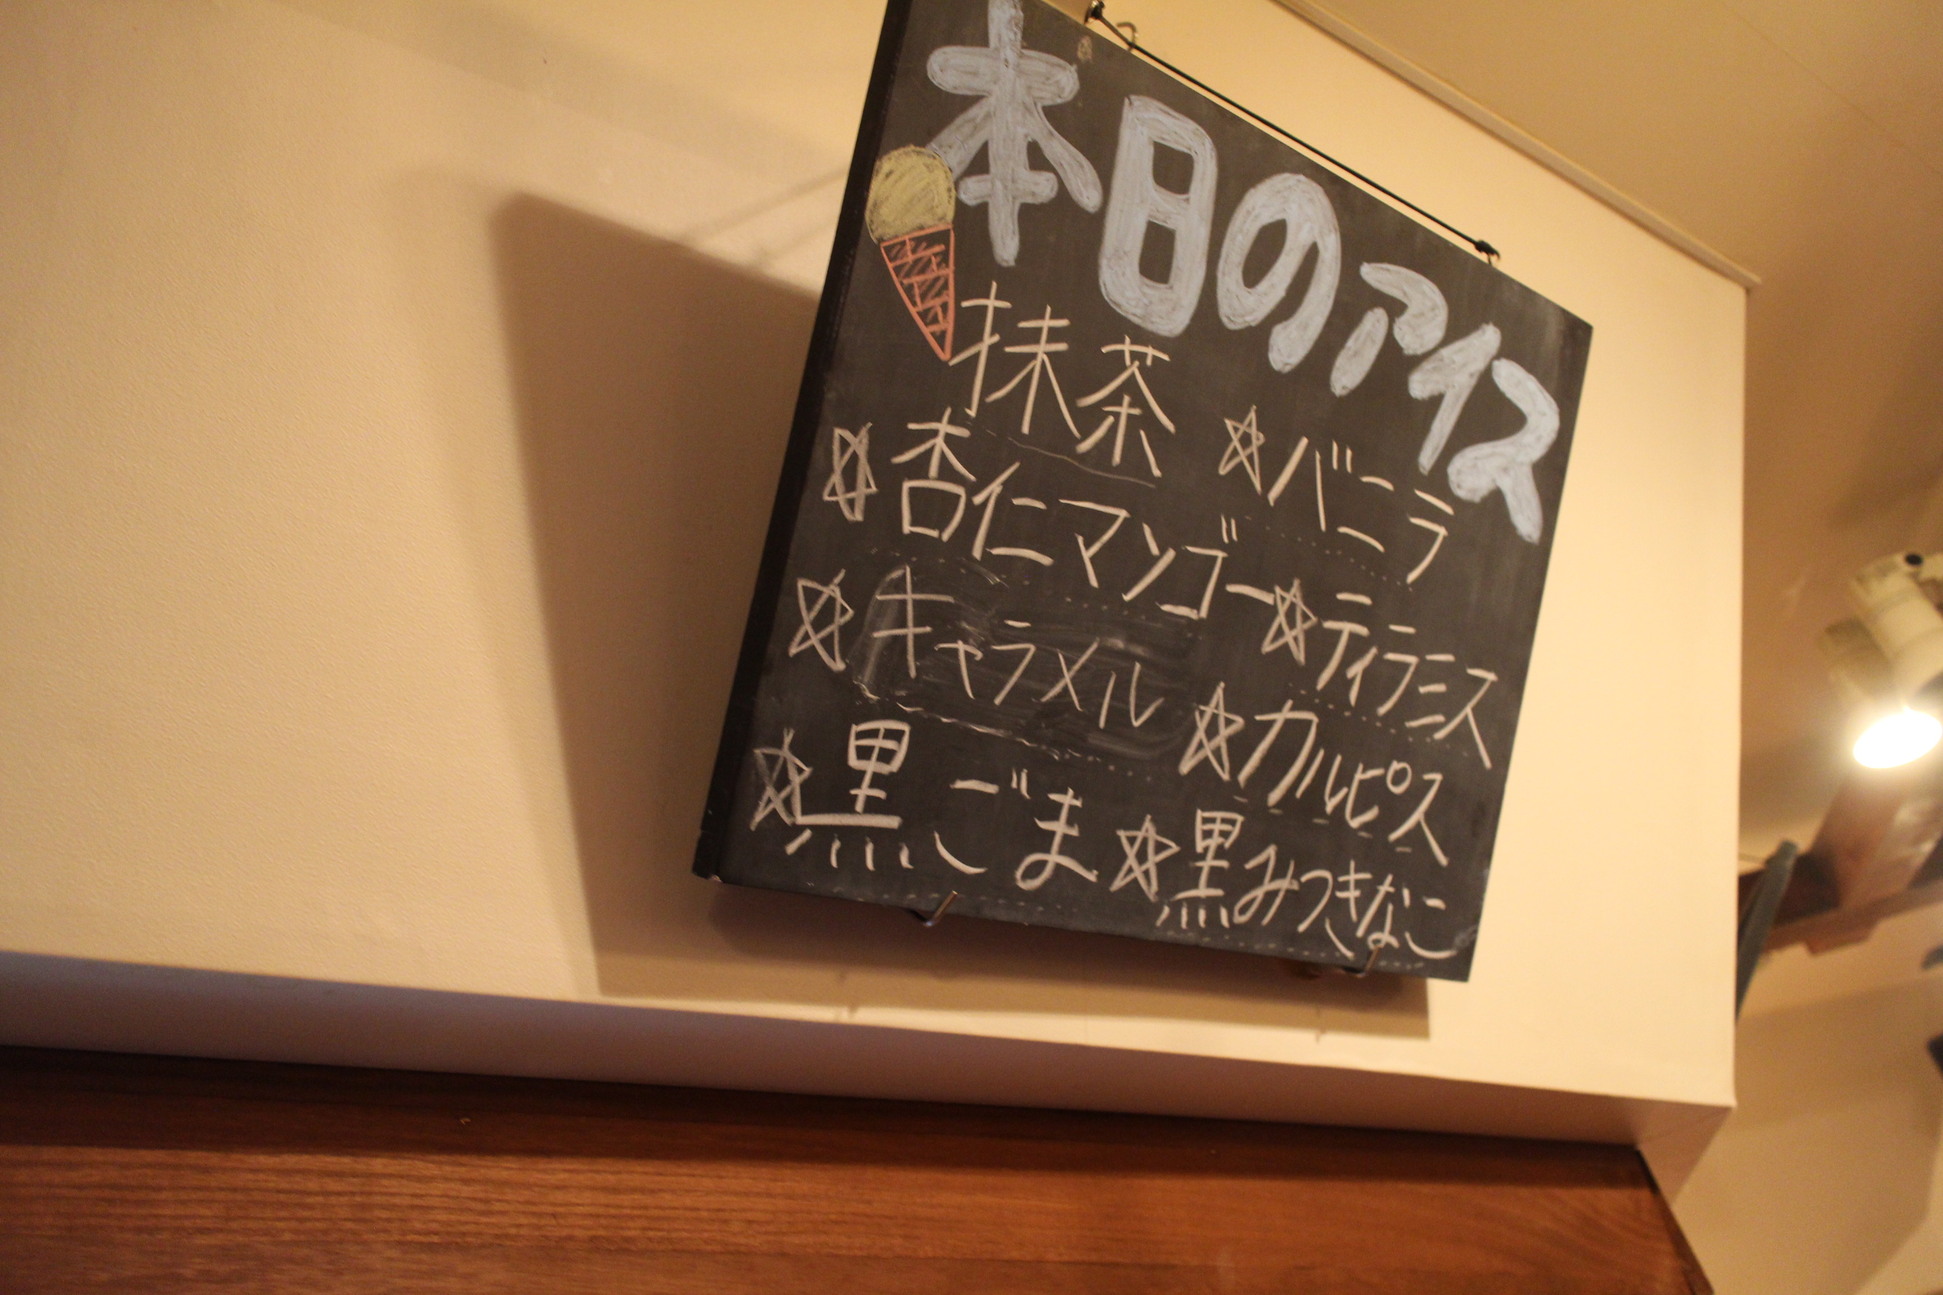 本日のアイス
抹茶 ☆バニラ
☆杏仁マンゴー☆ティラミス
☆キャラメル ☆カルピス
☆黒ごま ☆黒みつきなこ